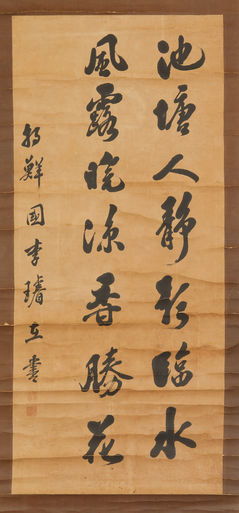 池塘人靜影臨水
風露曉涼香勝花
朝鮮國李璿在書